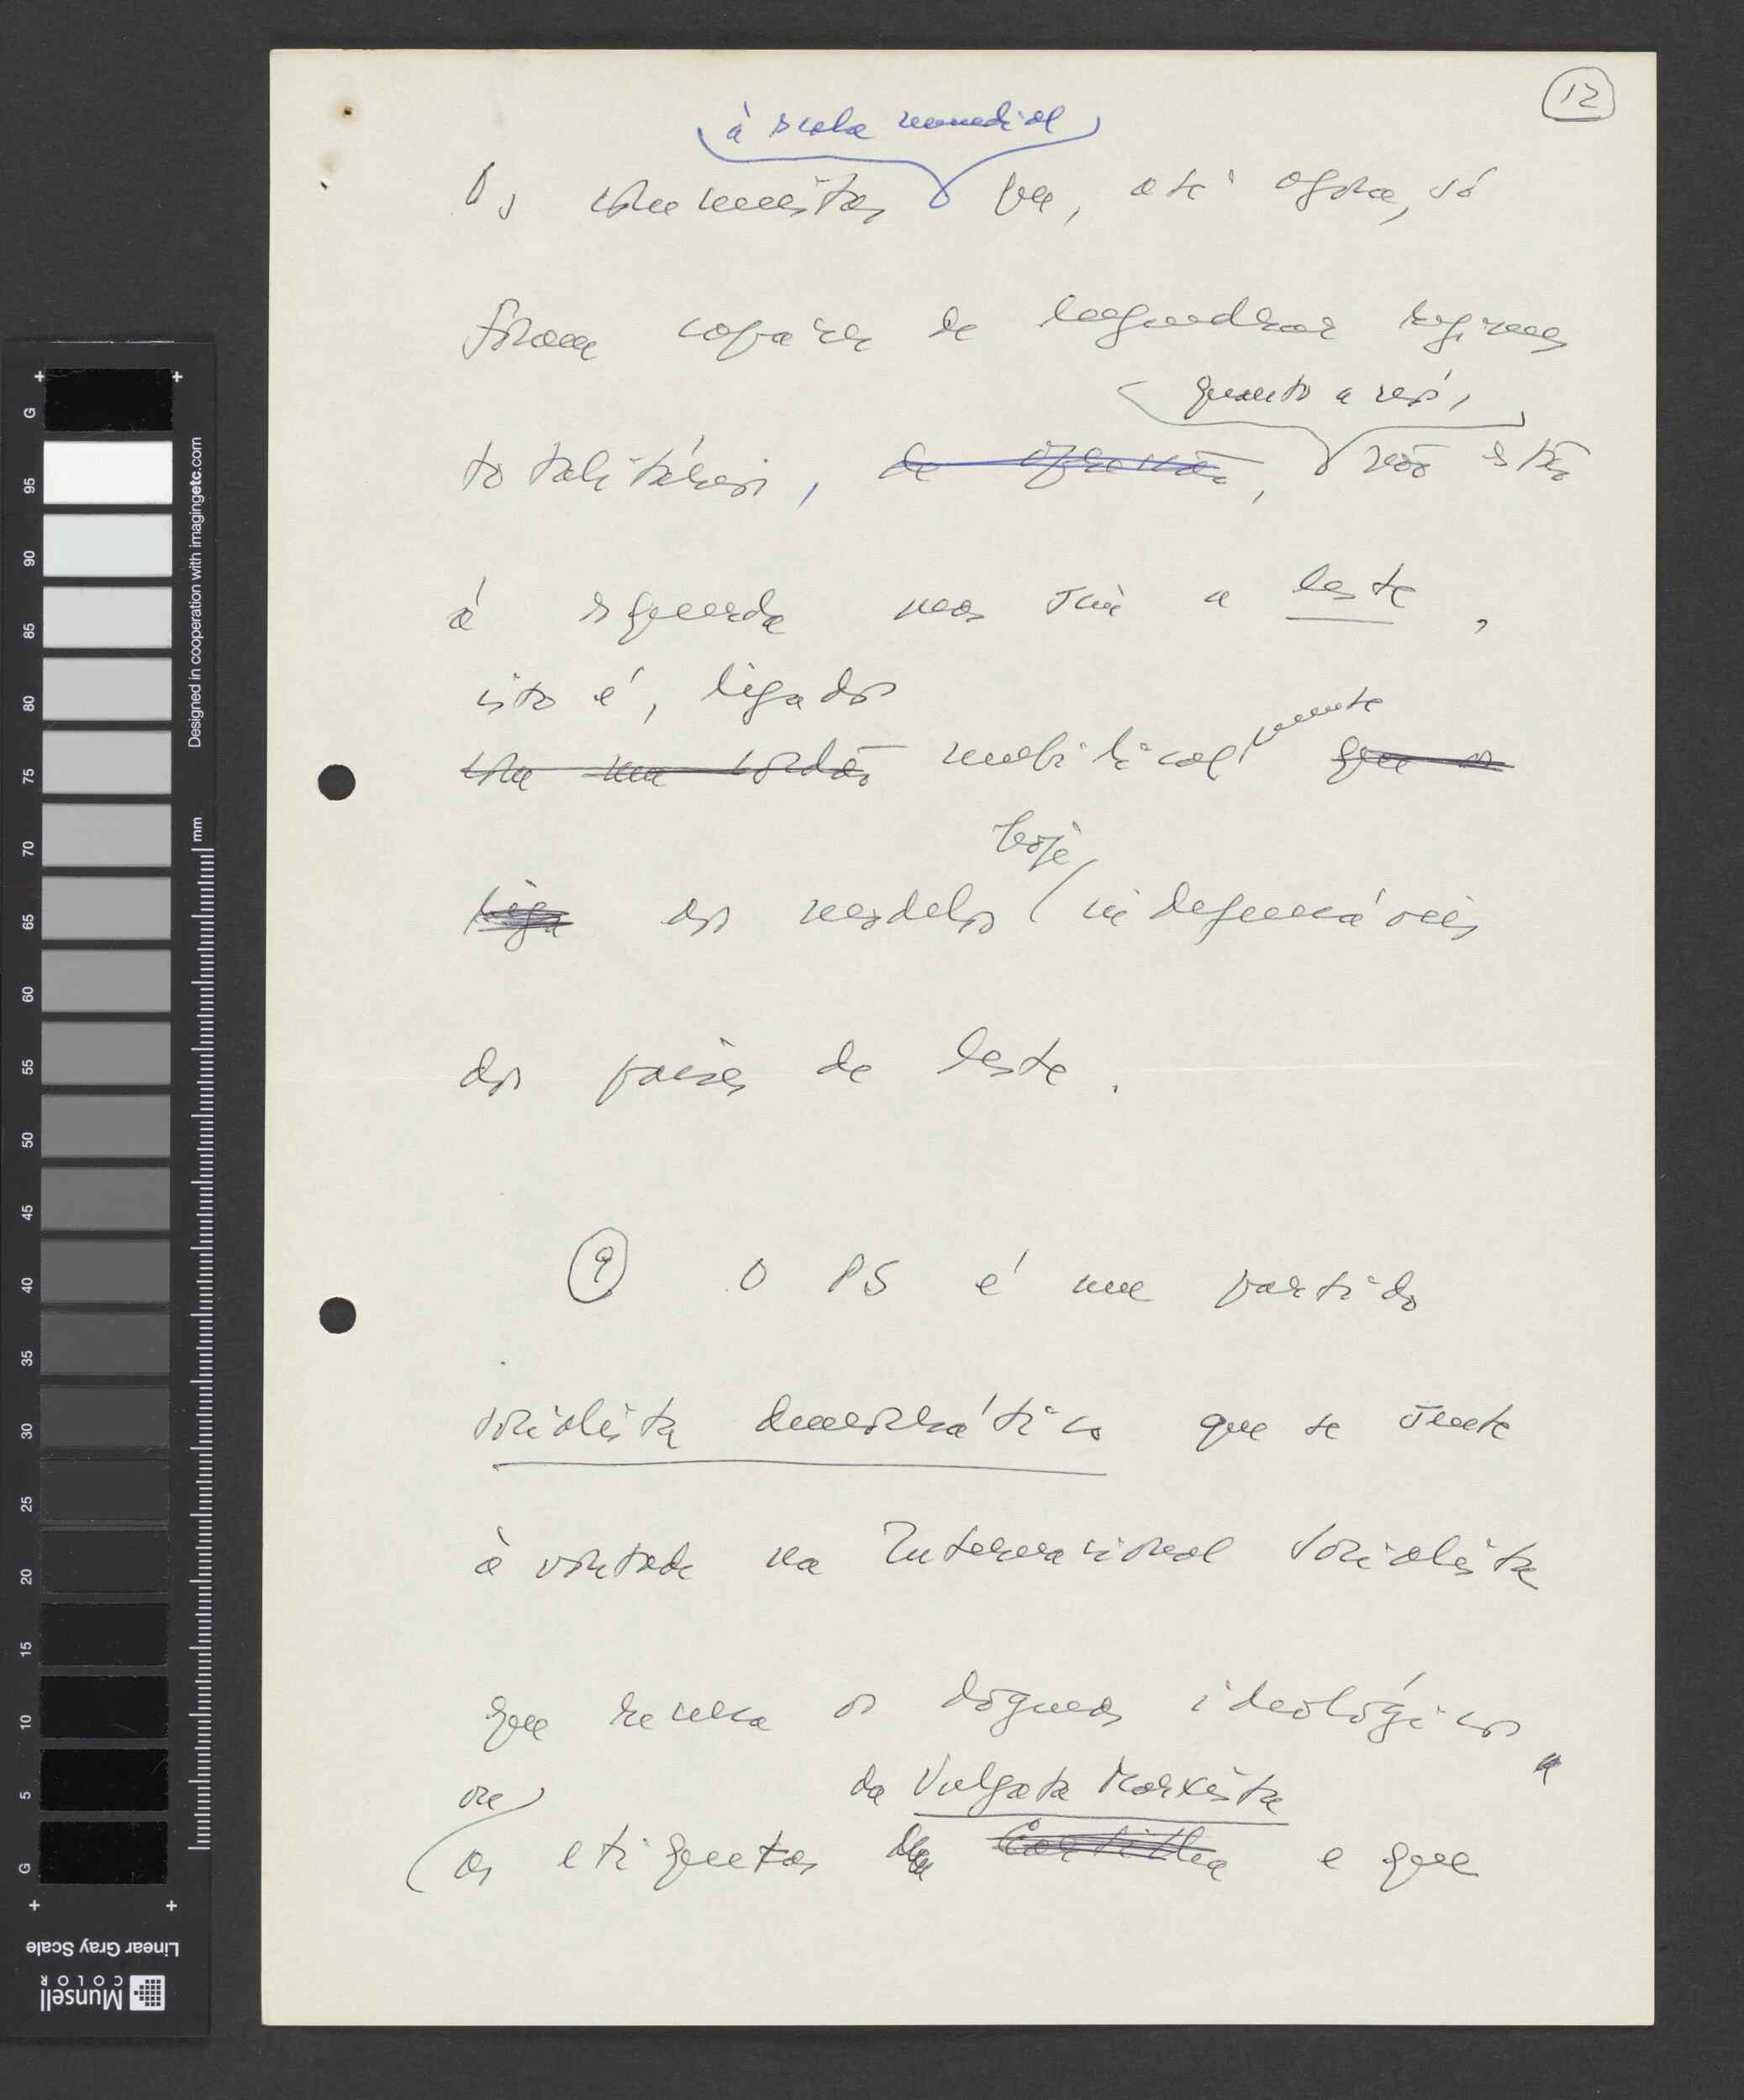 12
à escala mundial
Os comunistas que, até agora, só
foram capazes de engendrar regimes
quanto a nós,
totalitários, de opressão, não estão
à esquerda mas sim a leste,
isto é, ligados
com um cordão umbilicalmente que os
liga aos modelos hoje indefensáveis
dos países de leste.
9 O PS é um partido
socialista democrático que se sente
à vontade na Internacional Socialista
que recusa os dogmas ideológicos
ou da Vulgata Marxista
as etiquetas da Cartilha e que
G 95 90 85 80 75 70 65 60 55 50 45 40 35 30 25 20 15 10 5 G
mm
Designed in cooperation with imagingetc.com
Linear Gray Scale
Munsell
COLOR